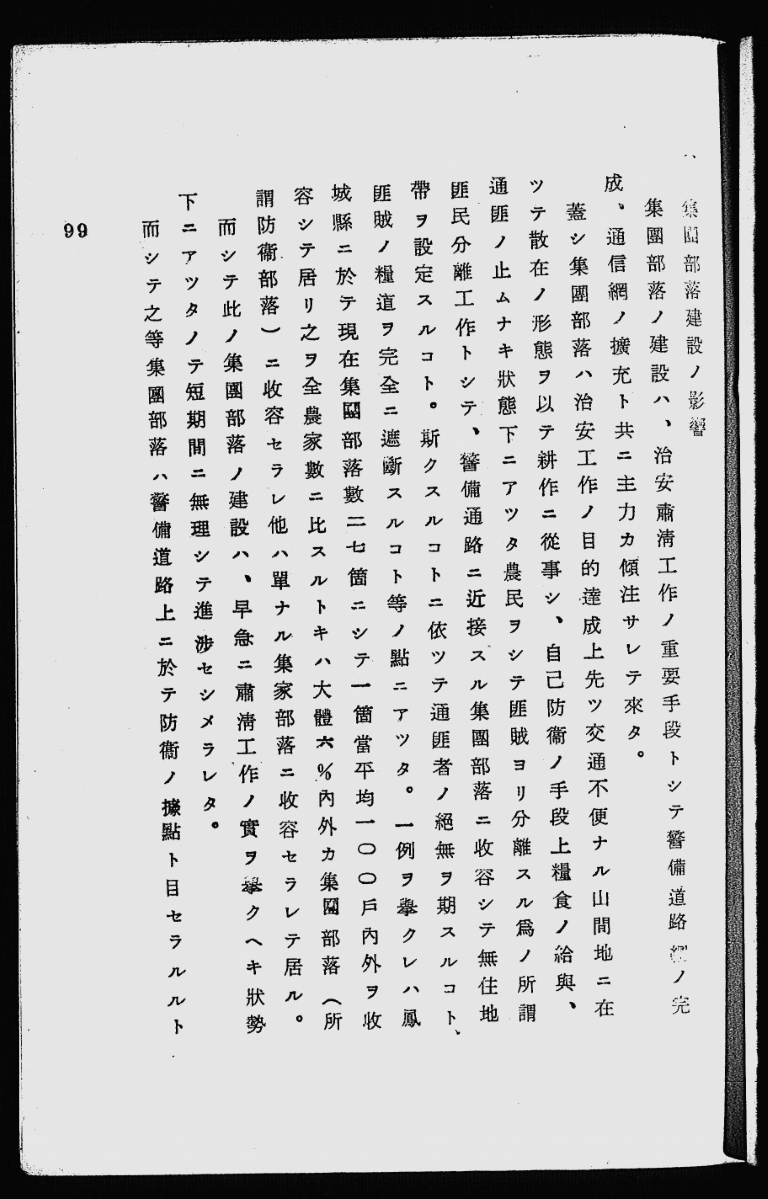 、集團部落建設ノ影響
集團部落ノ建設ハ、治安肅淸工作ノ重要手段トシテ警備道路網ノ完
成、通信網ノ擴充ト共ニ主力カ傾注サレテ來タ。
蓋シ集團部落ハ治安工作ノ目的達成上先ツ交通不便ナル山間地ニ在
ツテ散在ノ形態ヲ以テ耕作ニ從事シ、自己防衞ノ手段上糧食ノ給與、
通匪ノ止ムナキ狀態下ニアツタ農民ヲシテ匪賊ヨリ分離スル爲ノ所謂
匪民分離工作トシテ、警備通路ニ近接スル集團部落ニ收容シテ無住地
帶ヲ設定スルコト。斯クスルコトニ依ツテ通匪者ノ絕無ヲ期スルコト、
匪賊ノ糧道ヲ完全ニ遮斷スルコト等ノ點ニアツタ。一例ヲ擧クレハ鳳
城縣ニ於テ現在集團部落數二七箇ニシテ一箇當平均一〇〇戶內外ヲ收
容シテ居リ之ヲ全農家數ニ比スルトキハ大體六%內外カ集團部落（所
謂防衞部落）ニ收容セラレ他ハ單ナル集家部落ニ收容セラレテ居ル。
而シテ此ノ集團部落ノ建設ハ、早急ニ肅淸工作ノ實ヲ擧クヘキ狀勢
下ニアツタノテ短期間ニ無理シテ進涉セシメラレタ。
而シテ之等集團部落ハ警備道路上ニ於テ防衞ノ據點ト目セラルルト
99